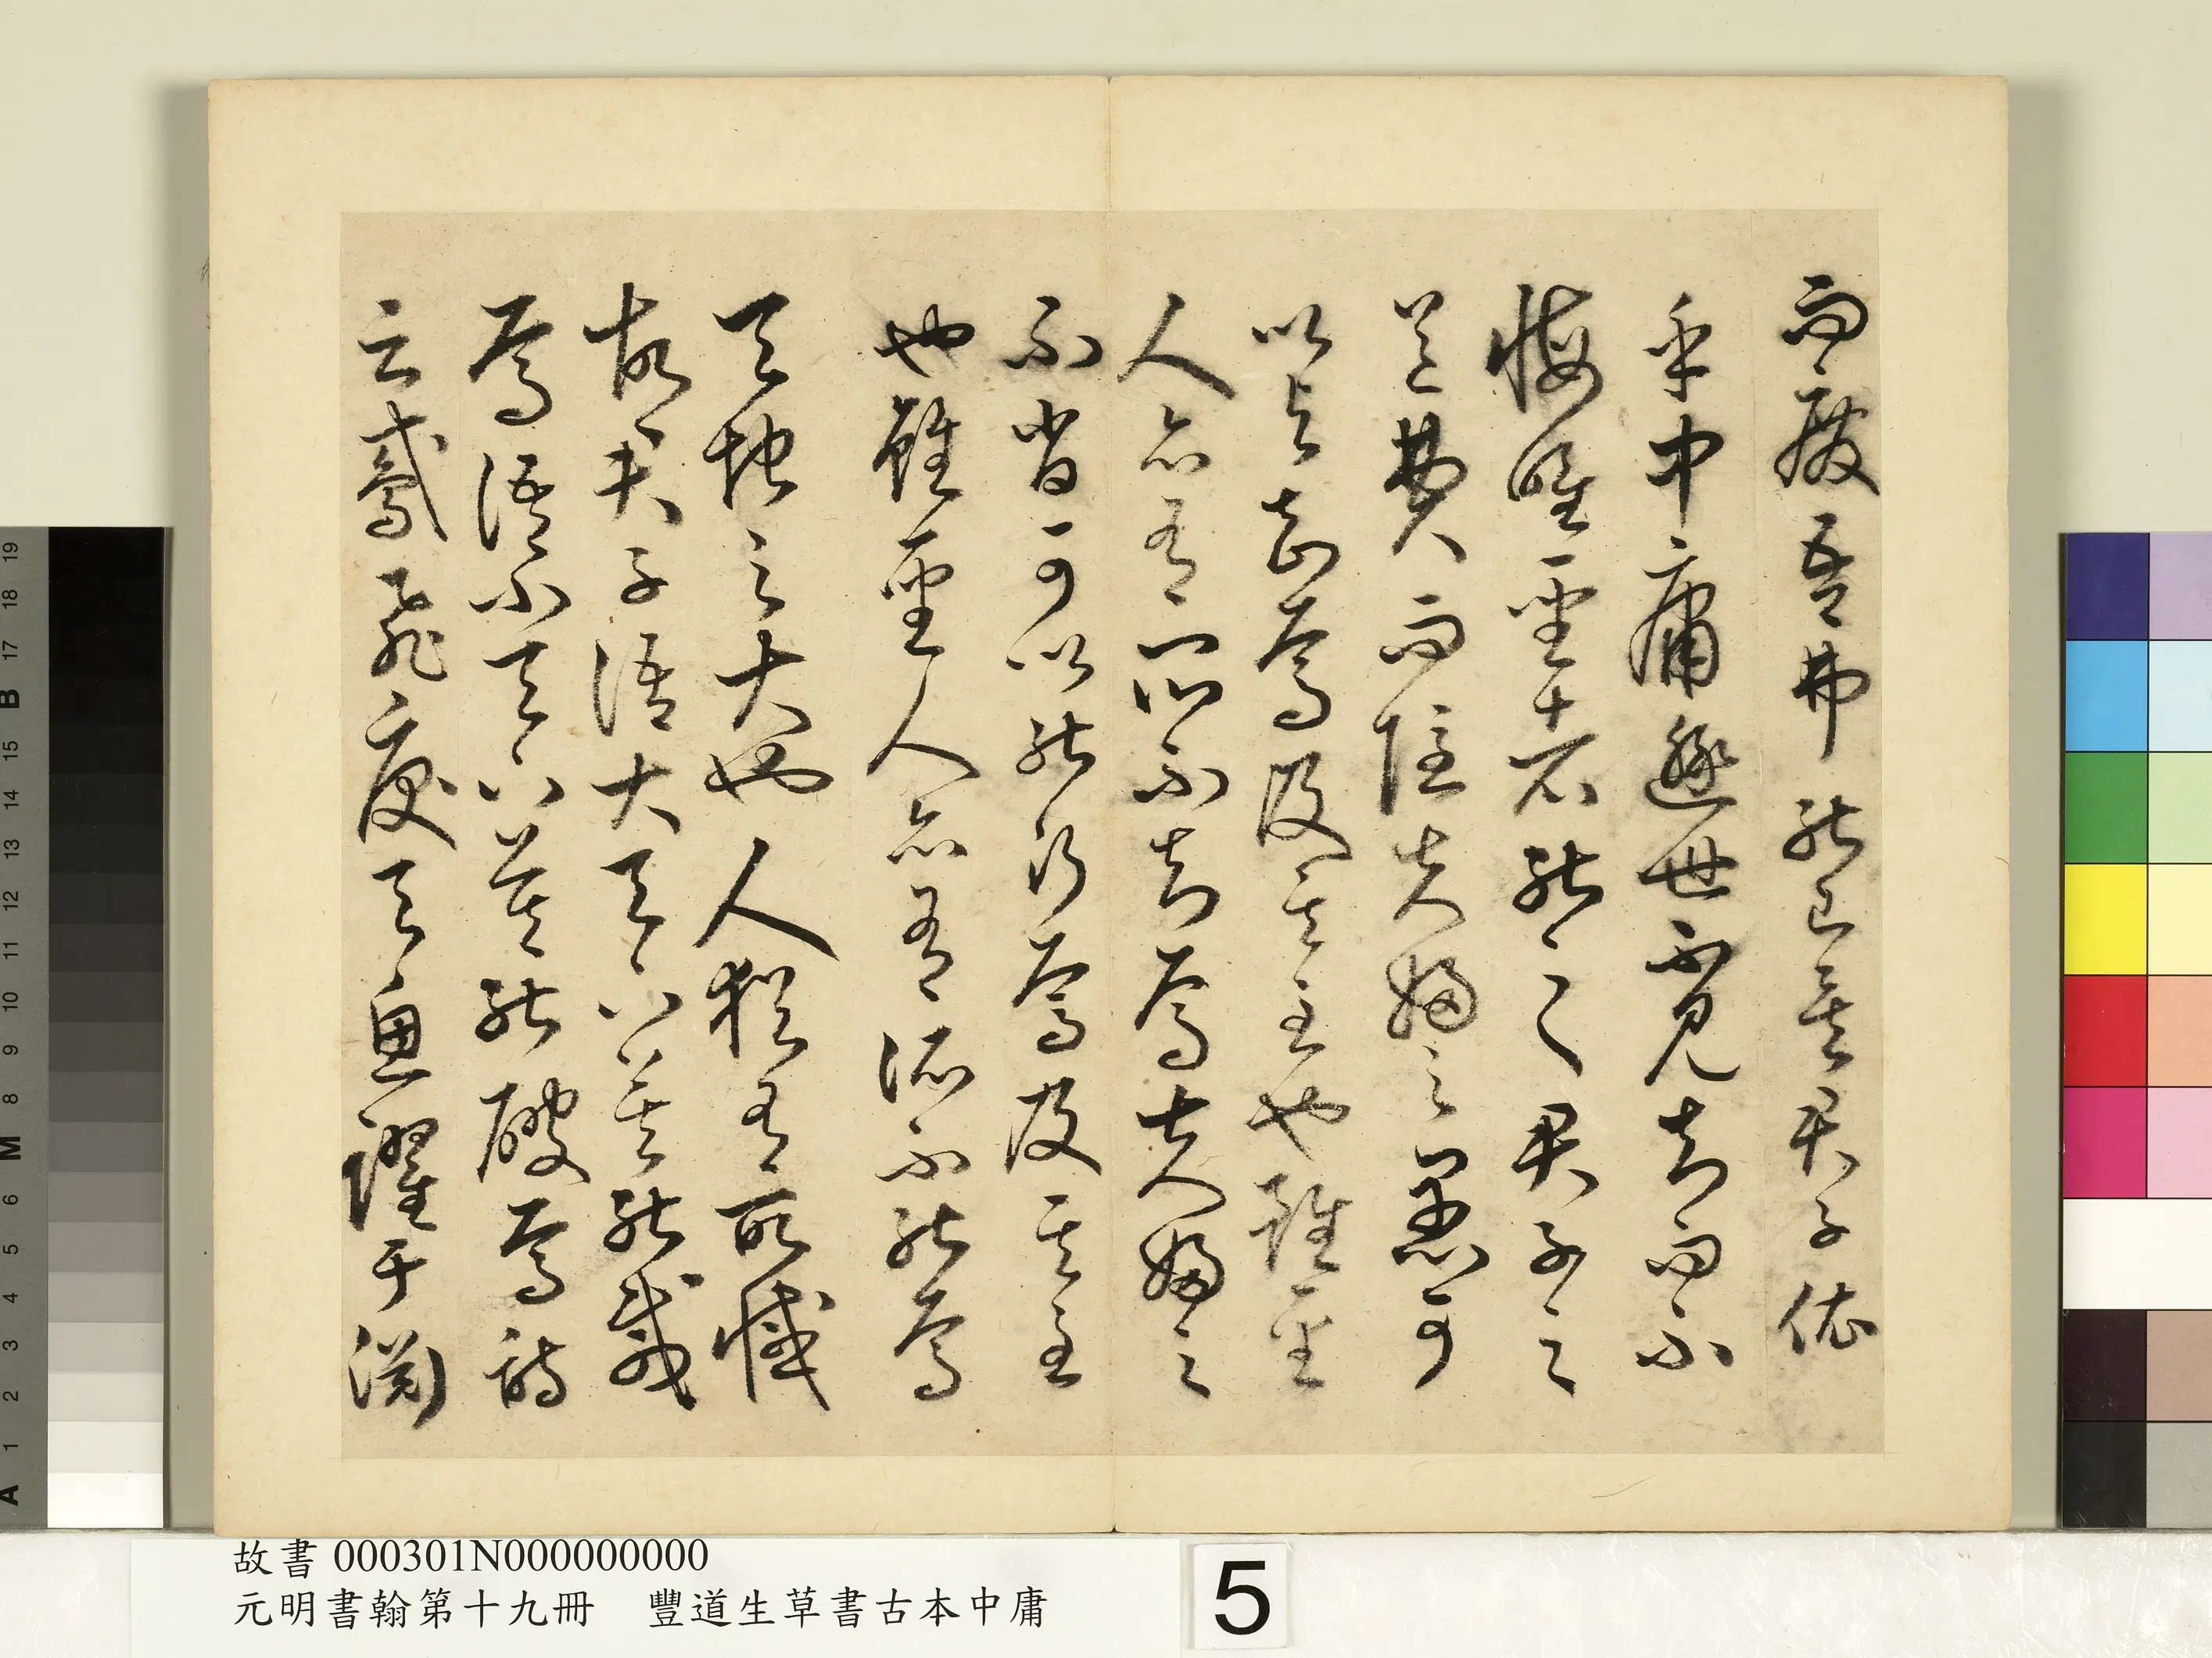 而廢吾弗能已矣君子依
乎中庸遯世不見知而不
悔唯聖者能之君子之
道費而隱夫婦之愚可
以與知焉及其至也雖聖
人亦有所不知焉夫婦之
不肖可以能行焉及其至
也雖聖人亦有所不能焉
天地之大也人猶有所憾
故君子語大天下莫能載
焉語小天下莫能破焉詩
云鳶飛戾天魚躍于淵
故書 000301N000000000
元明書翰第十九冊 豐道生草書古本中庸
5
A 1 2 3 4 5 6 M 8 9 10 11 12 13 14 15 B 17 18 19